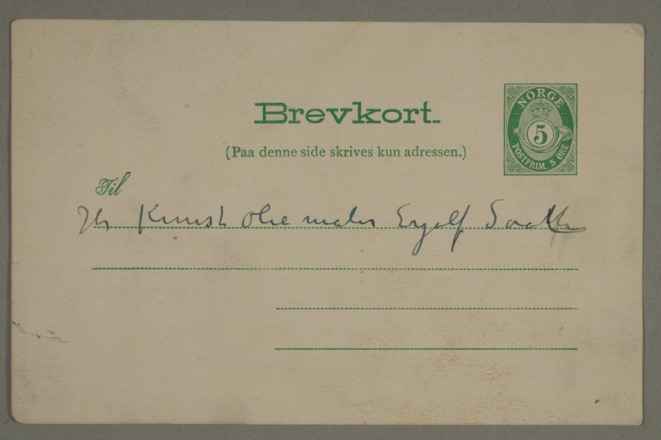 Brevkort.
NORGE
5
POSTFRIM. 5 ØRE.
(Paa denne side skrives kun adressen.)
Til
Hr Kunst Olie maler Eyolf Soot